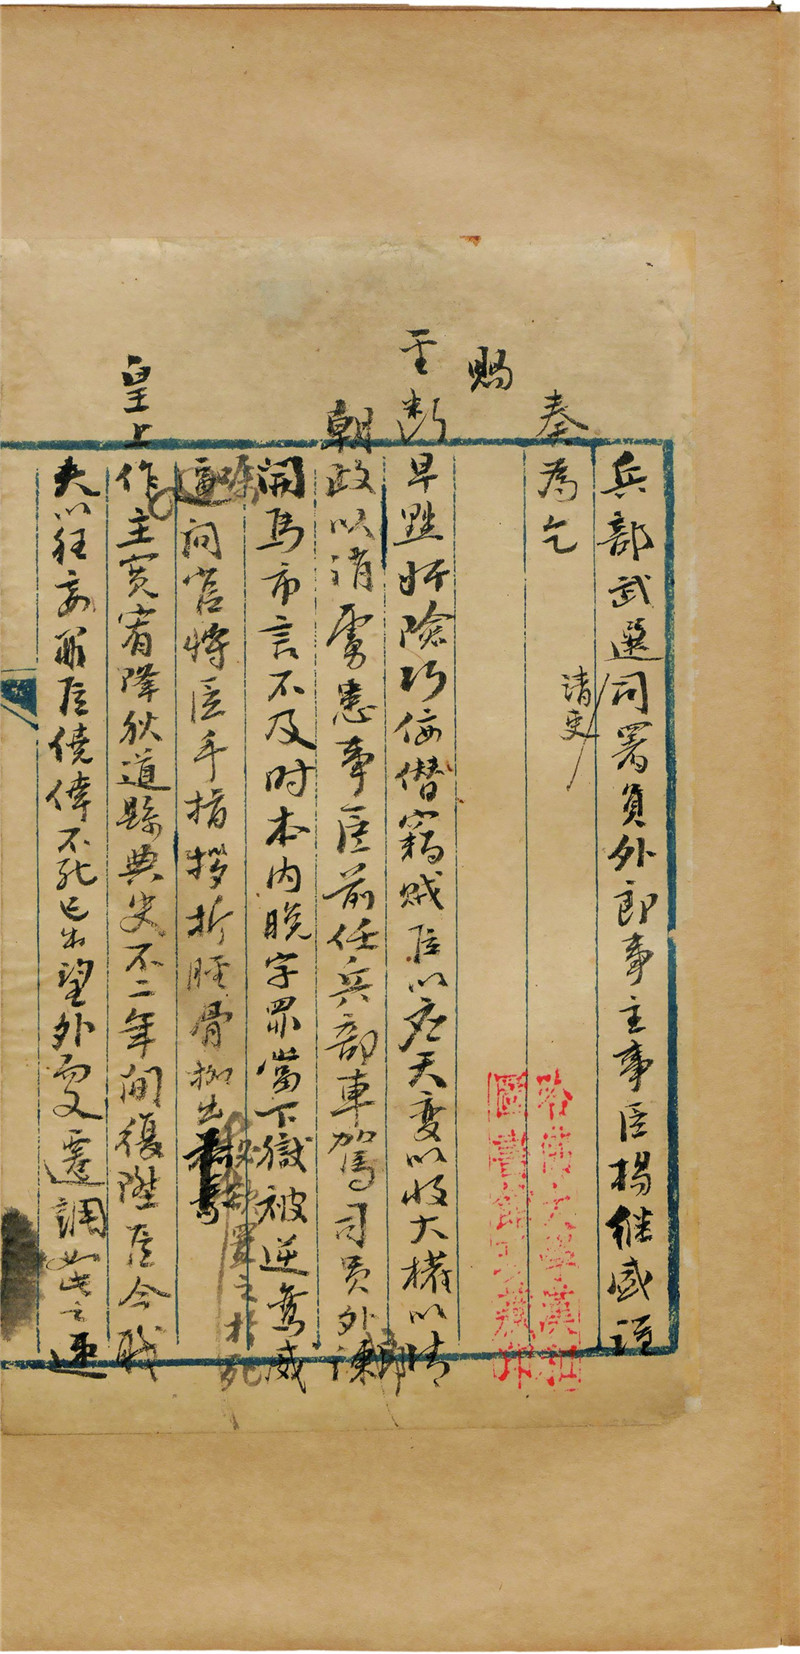 兵部武選司署員外郎事主事臣楊継盛謹
奏為乞
請史
賜
圣断早黜奸險巧佞僭竊賊臣以應天變以收大權以清
朝政以消虜患事臣前任兵部車駕司員外郎諫
開馬市言不及时本内晚字罪當下獄被逆鸞威
嘱逼问官将臣手指拶折脛骨㧟出
置之於死
皇上作主寬宥降狄道縣典史不二年間復陞臣今職
夫以狂妄罪臣僥倖不死已出望外而又遷調如此之速
哈佛大學漢和
圖書館珍藏印